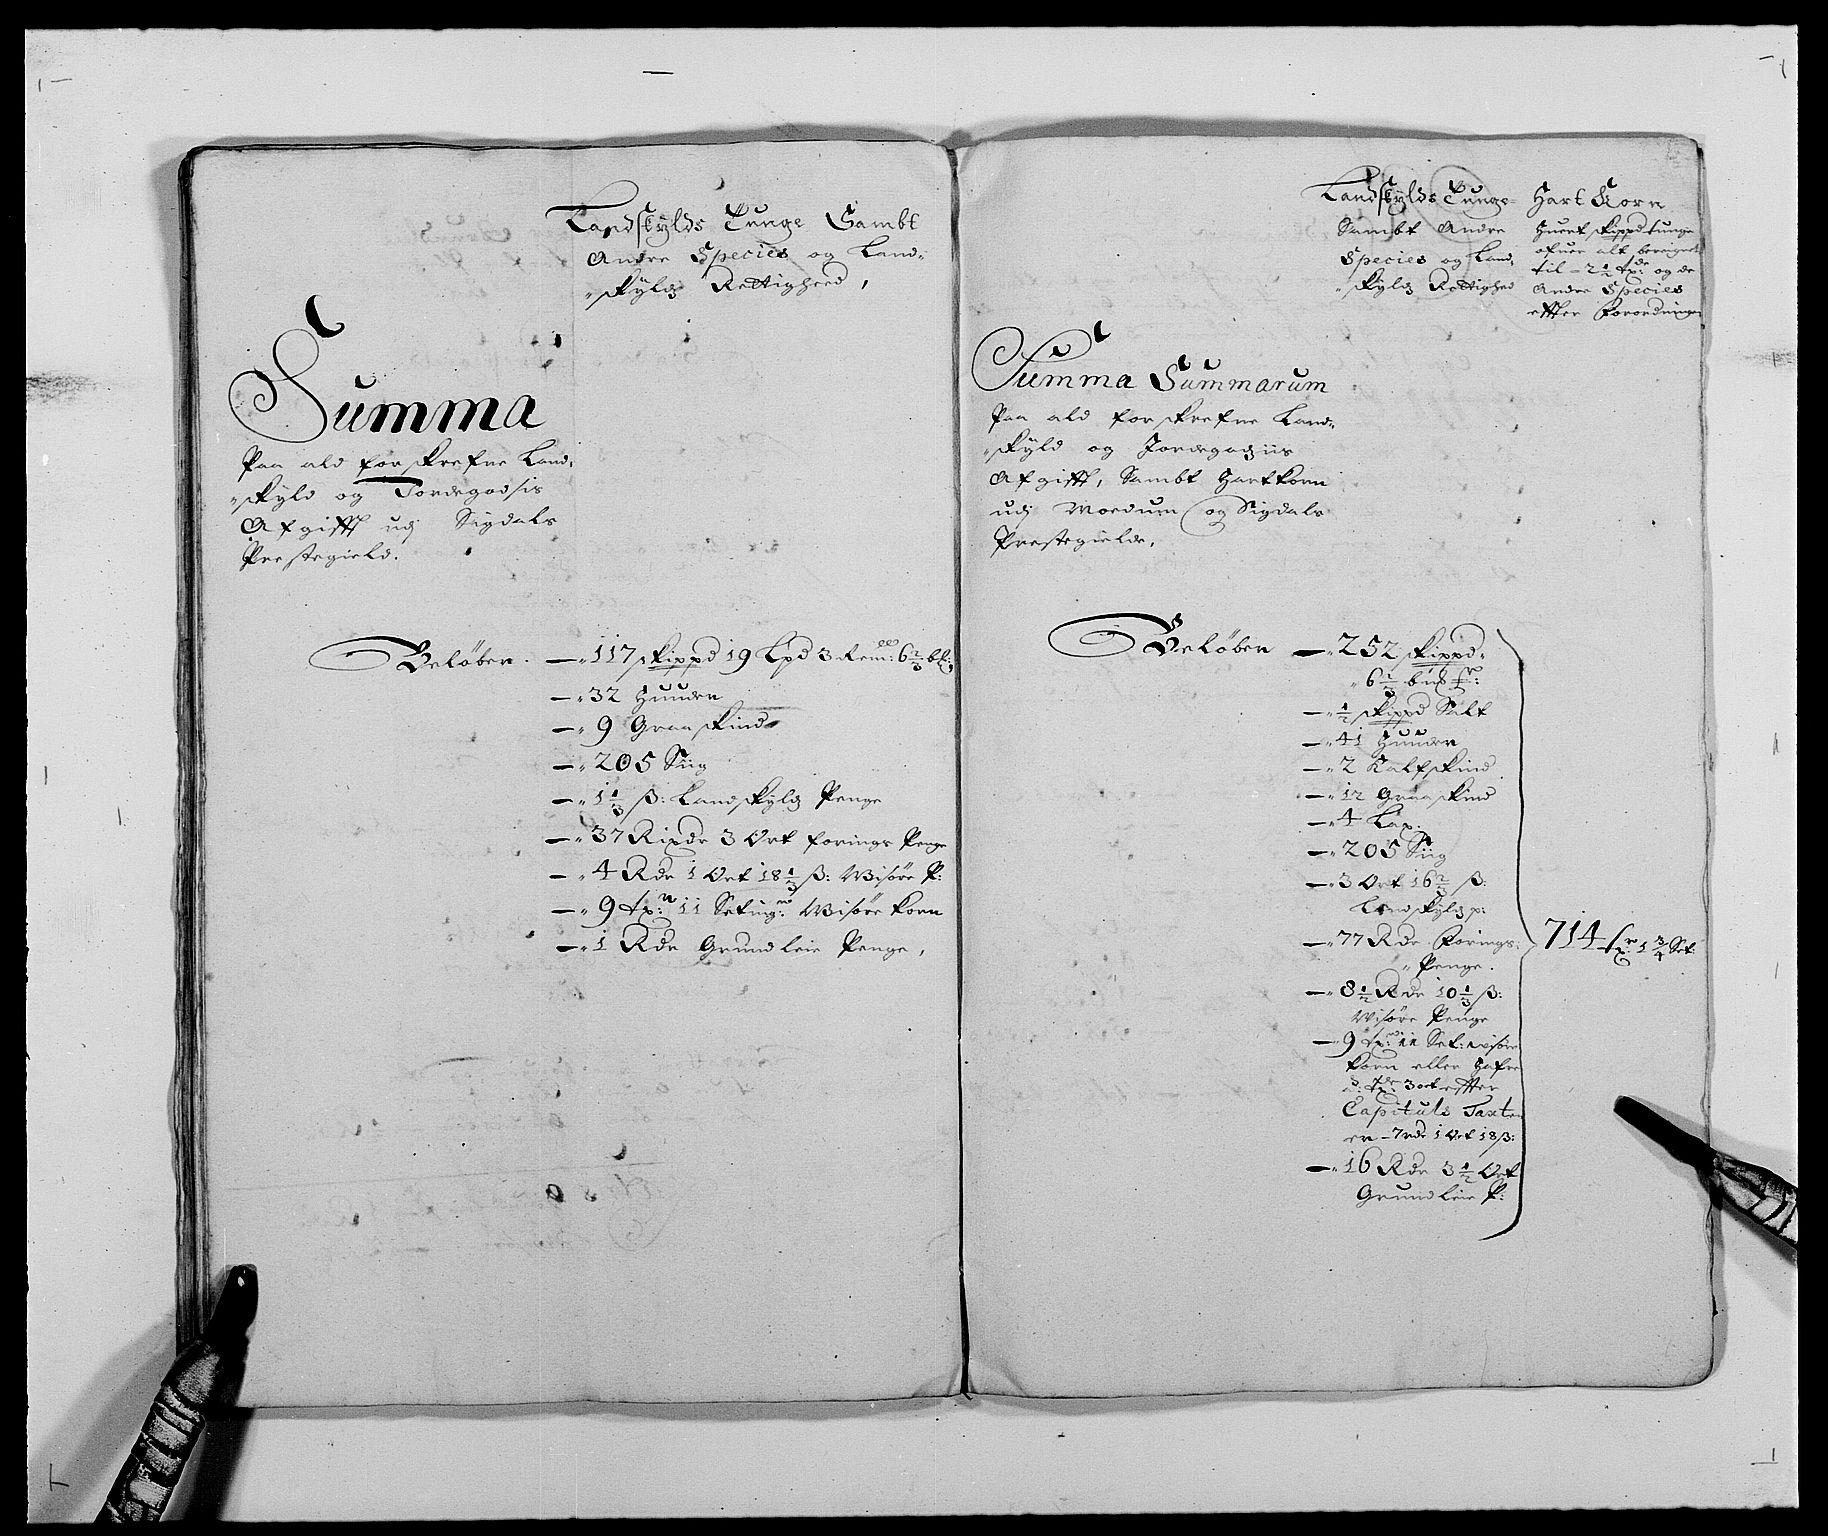 Landskylds Tunge Sambt
Andre Species og Land-
skyldz Rettigheed,
Summa
Paa ald forskrefne Land-
skyld og Jordegodsis
Afgifft udj Sigdals
Prestegield.
Beløber. — 117 skippd 19 Lpd 3 Rem: 6 2/3 bß:
— 32 Huuder
— 9 Graaskind
— 205 Siig
— 1 1/3 ß: Landskyldz Penge
— 37 Rixdr 3 Ort forings Penge
— 4 Rdr 1 Ort 18 1/3 ß: Wisøre P:
— 9 tr: 11 Seting: Wisøre korn
— 1 Rdr Grundleie Penge,
Landskylds Tunge
Sambt Andre
Species og Land-
skyldz Rettighed
Hart Korn
Huert skippd tunge
ofuer alt beregnet
til 2 1/2 tr: og de
Andre Species
effter Forordningen
Summa Summarum
Paa ald forskrefne Land-
skyld og Jordegodziis
Afgifft, Sambt Hartkorn
udj Moedum og Sigdals
Prestegielde,
Beløber — 252 skippd
6 2/3
— 1/2 skippd Salt
— 41 Huuder
— 2 Kalfskind
— 12 Graaskind
— 4 Lax
— 205 Siig
— 3 Ort 16 2/3 ß:
Landskyldz p:
— 77 Rdr Forings
Penge.
— 8 1/2 Rdr 10 1/3 ß:
Wisøre Penge
— 9 tr: 11 Set: wisøre
korn eller Hafre
3 ort effter
Capituls Taxten
er 7 rdr 1 Ort 18 ß:
— 16 Rdr 3 1/2 Ort
Grundleie P:
714 tr 1 3/4 Set: